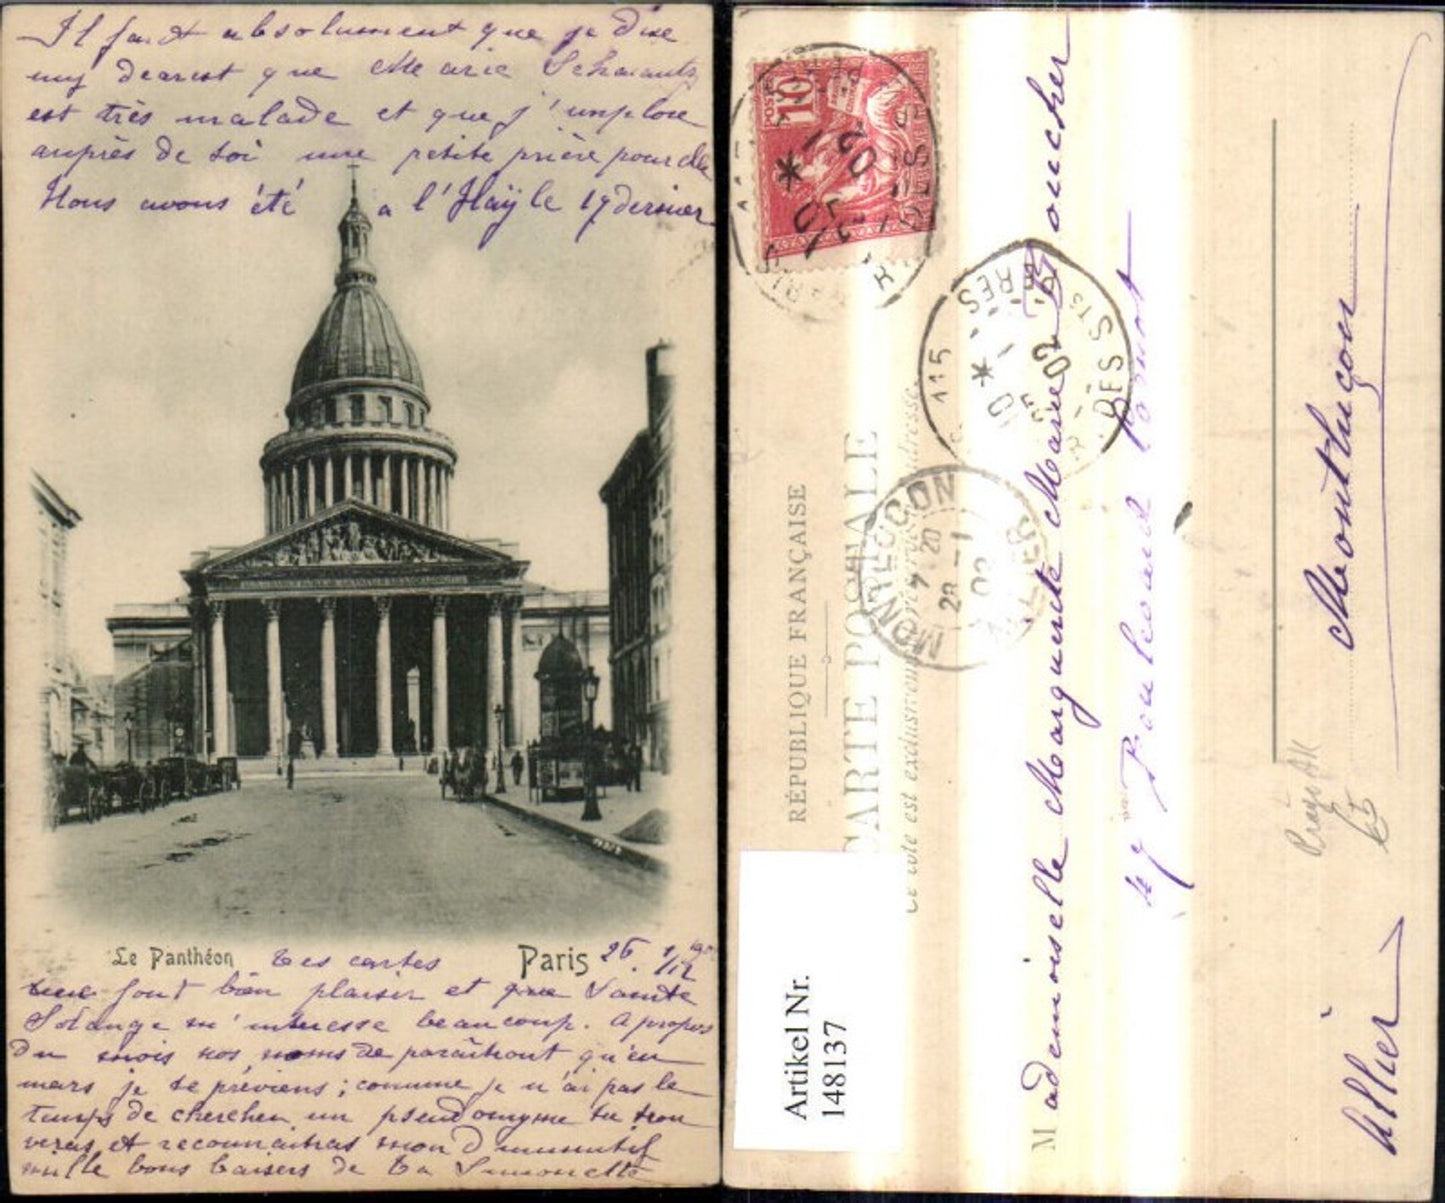 Il faut absolument que je dise
my dearest que Marie Schwantz
est très malade et que j'implore
auprès de toi une petite prière pour elle
Nous avons été a l'Haÿ le 19 dernier
Le Panthéon
Paris
26. 1/12
tes cartes
me font bien plaisir et que Sainte
Solange m'interesse beaucoup. A propos
du mois nos noms de paraîtront qu'en
mars je te préviens; comme je n'ai pas le
temps de chercher un pseudonyme tu trou
veras et reconnaitras mon diminutif
mille bons baisers de ta Simonette
RÉPUBLIQUE FRANÇAISE
CARTE POSTALE
Ce côté est exclusivement réservé à l'adresse
POSTES
10
115
R. DES STS PÈRES
MONTLUCON
ALLIER
28 - 1
02
Mademoiselle Marguerite Marie Boucher
47 Boulevard Carnot
Montluçon
Allier
Artikel Nr.
148137